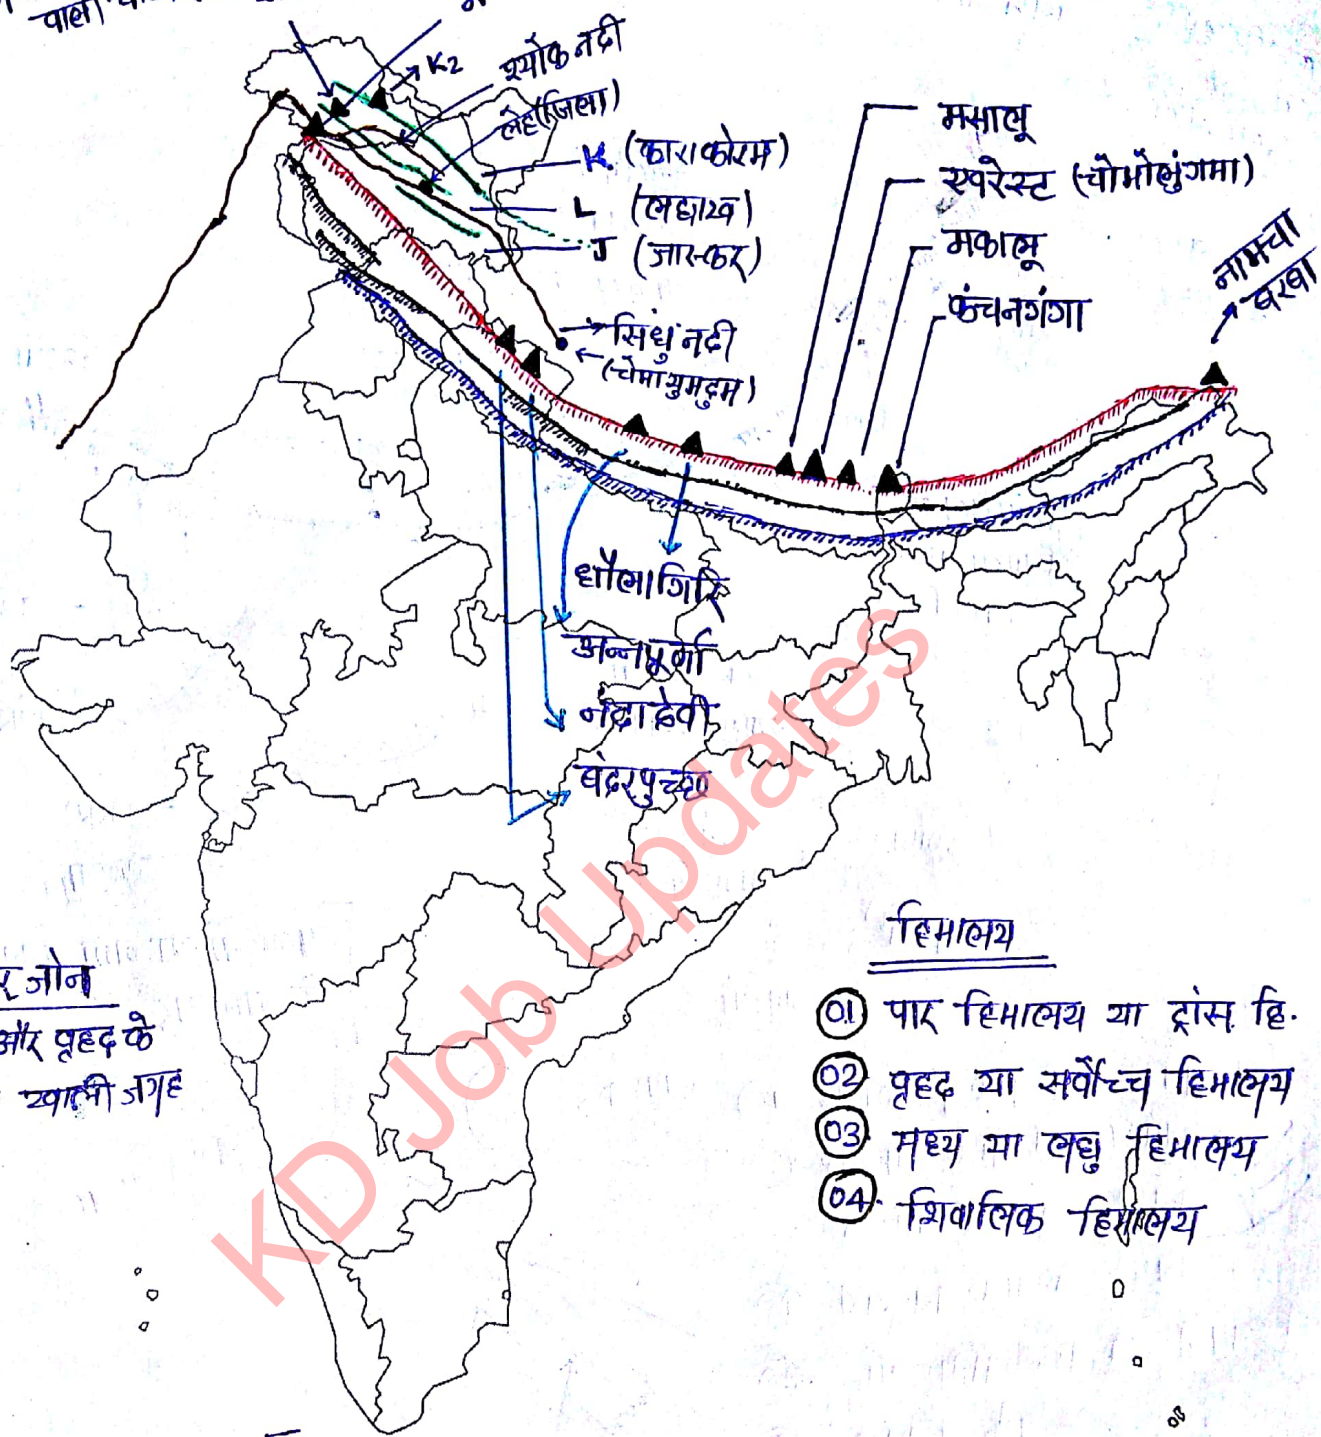 वाली
K2
श्योक नदी
लेह (जिला)
K. (काराकोरम)
L (लद्दाख)
J (जास्कर)
सिंधु नदी
(चेमायुमदुम)
मसालू
एवरेस्ट (चोमोलुंगमा)
मकालू
कंचनगंगा
नामचा
बरवा
धौलागिरि
अन्नपूर्णा
नंदा देवी
बंदरपुच्छ
जोन
और वृहद के
खाली जगह
हिमालय
01 पार हिमालय या ट्रांस हि.
02 वृहद या सर्वोच्च हिमालय
03 मध्य या लघु हिमालय
04. शिवालिक हिमालय
KD Job Updates